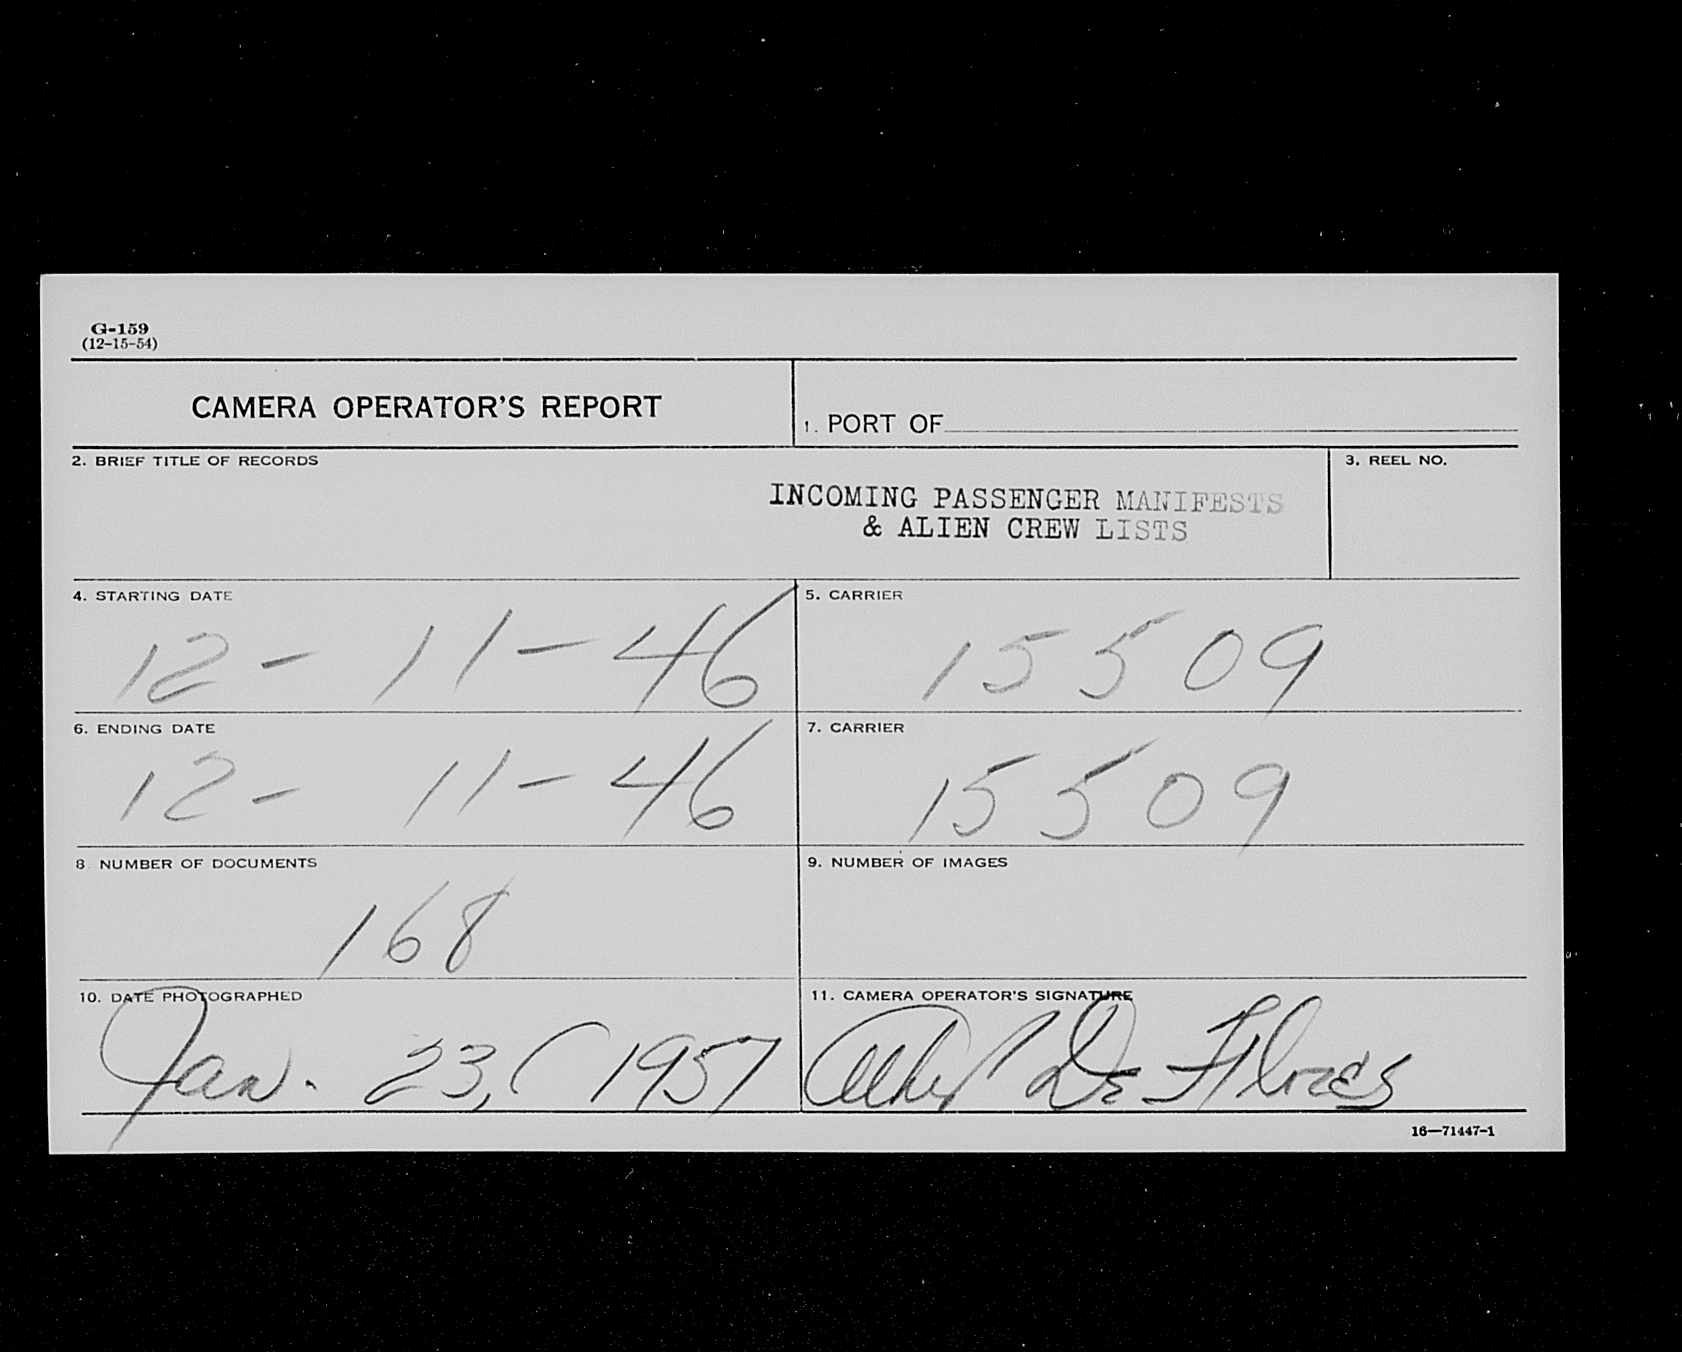 G-159
(12-15-54)
CAMERA OPERATOR'S REPORT
1. PORT OF
2. BRIEF TITLE OF RECORDS
INCOMING PASSENGER MANIFESTS
& ALIEN CREW LISTS
3. REEL NO.
4. STARTING DATE
12-11-46
5. CARRIER
15509
6. ENDING DATE
12-11-46
7. CARRIER
15509
8 NUMBER OF DOCUMENTS
168
9. NUMBER OF IMAGES
10. DATE PHOTOGRAPHED
Jan. 23, 1957
11. CAMERA OPERATOR'S SIGNATURE
De Flores
16—71447-1